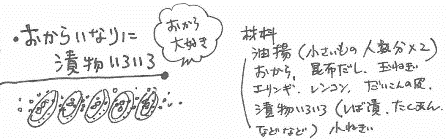 ・おからいなりに
漬物いろいろ
おから
大好き
材料
油揚(小さいもの人数分×2)
おから、昆布だし、玉ねぎ
エリンギ、レンコン、だいこんの皮、
漬物いろいろ(しば漬、たくあん、
などなど)小ねぎ